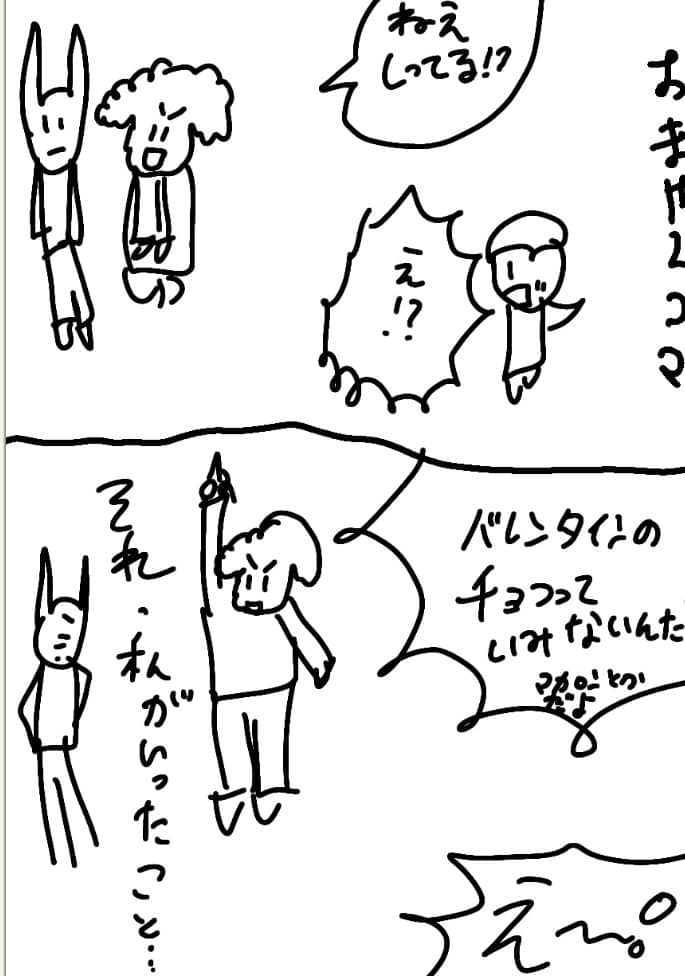 おまけ2コマ
ねえ
しってる!?
え!?
バレンタインの
チョコって
いみないんだ
マカロンとか
だよ
それ、私がいったこと…
え〜。